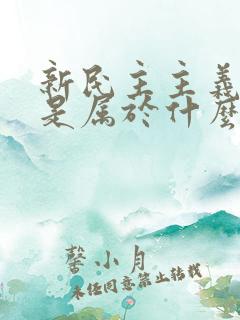 新民主主義
是属於什麼
馨小月
未经同意禁止转载